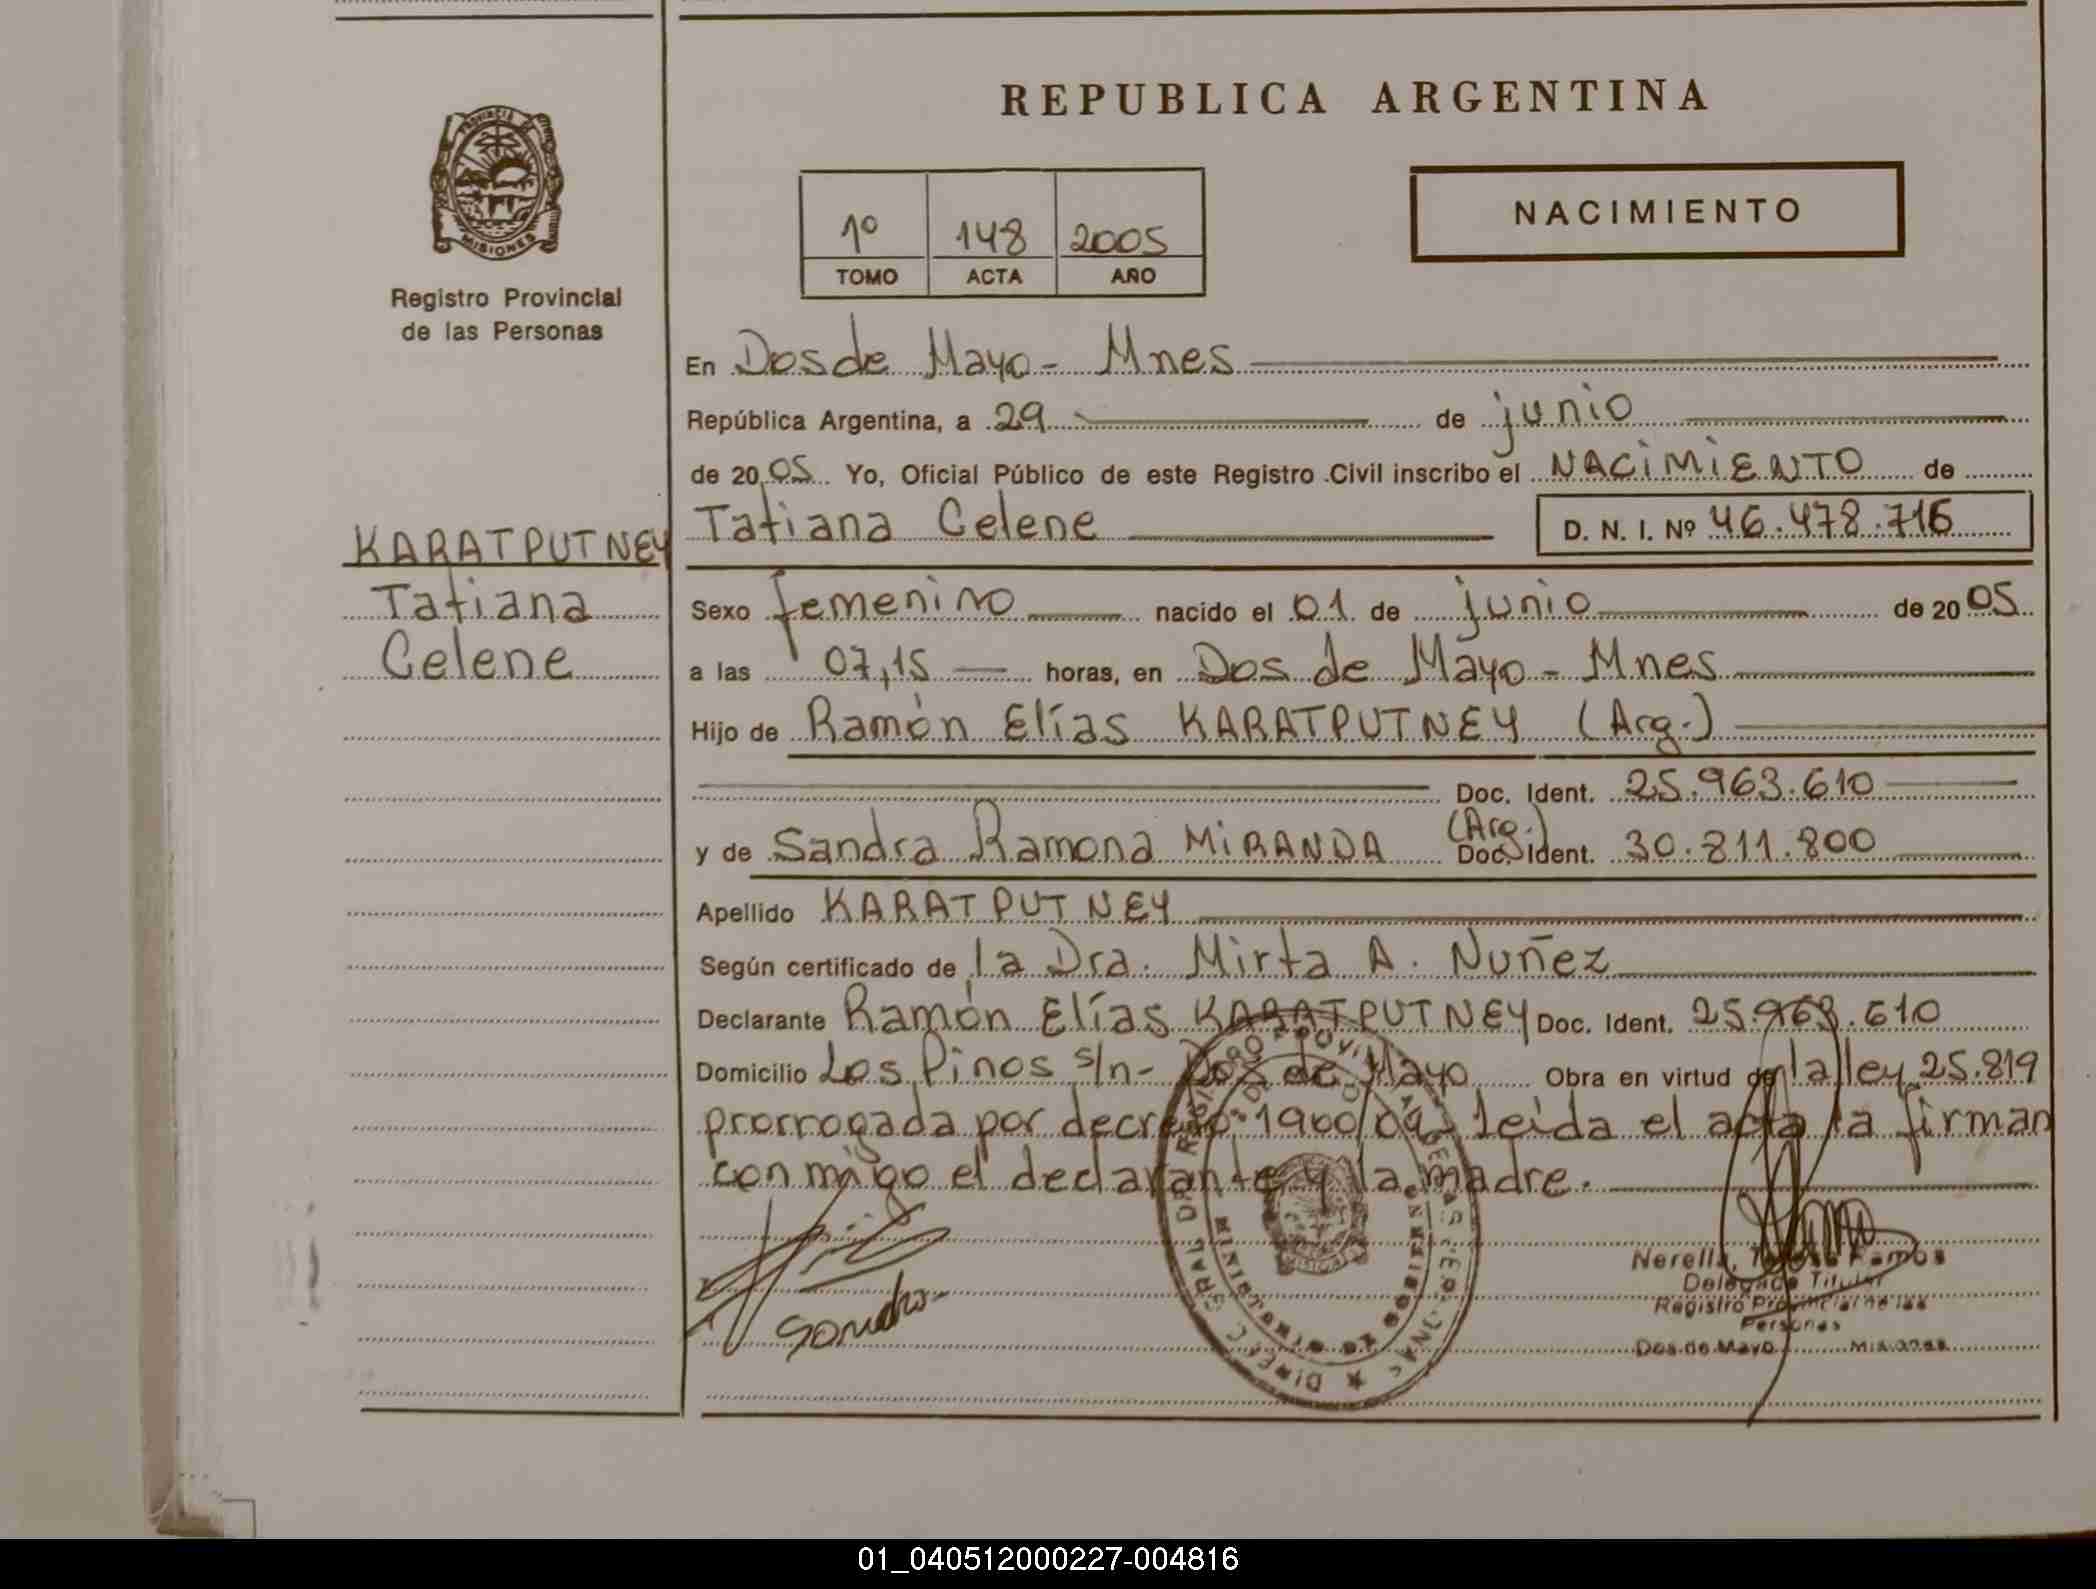 PROVINCIA DE
MISIONES
Registro Provincial
de las Personas
KARATPUTNEY
Tatiana
Celene
REPUBLICA ARGENTINA
1º 148 2005
TOMO ACTA AÑO
NACIMIENTO
En Dos de Mayo - Mnes
República Argentina, a 29 de junio
de 2005 Yo, Oficial Público de este Registro Civil inscribo el NACIMIENTO de
Tatiana Celene D. N. I. Nº 46.478.716
Sexo femenino nacido el 01 de junio de 2005
a las 07,15 horas, en Dos de Mayo - Mnes
Hijo de Ramón Elías KARATPUTNEY (Arg.)
Doc. Ident. 25.963.610
y de Sandra Ramona MIRANDA (Arg.) Doc. Ident. 30.811.800
Apellido KARATPUTNEY
Según certificado de la Dra. Mirta A. Nuñez
Declarante Ramón Elías KARATPUTNEY Doc. Ident. 25.963.610
Domicilio Los Pinos s/n - Dos de Mayo Obra en virtud de la ley 25.819
prorrogada por decreto 1900/04 - leída el acta la firman
con migo el declarante y la madre.
Sandra
Nerella, Ramos
Delegada Titular
Registro Provincial de las
Personas
Dos de Mayo Misiones
01_040512000227-004816